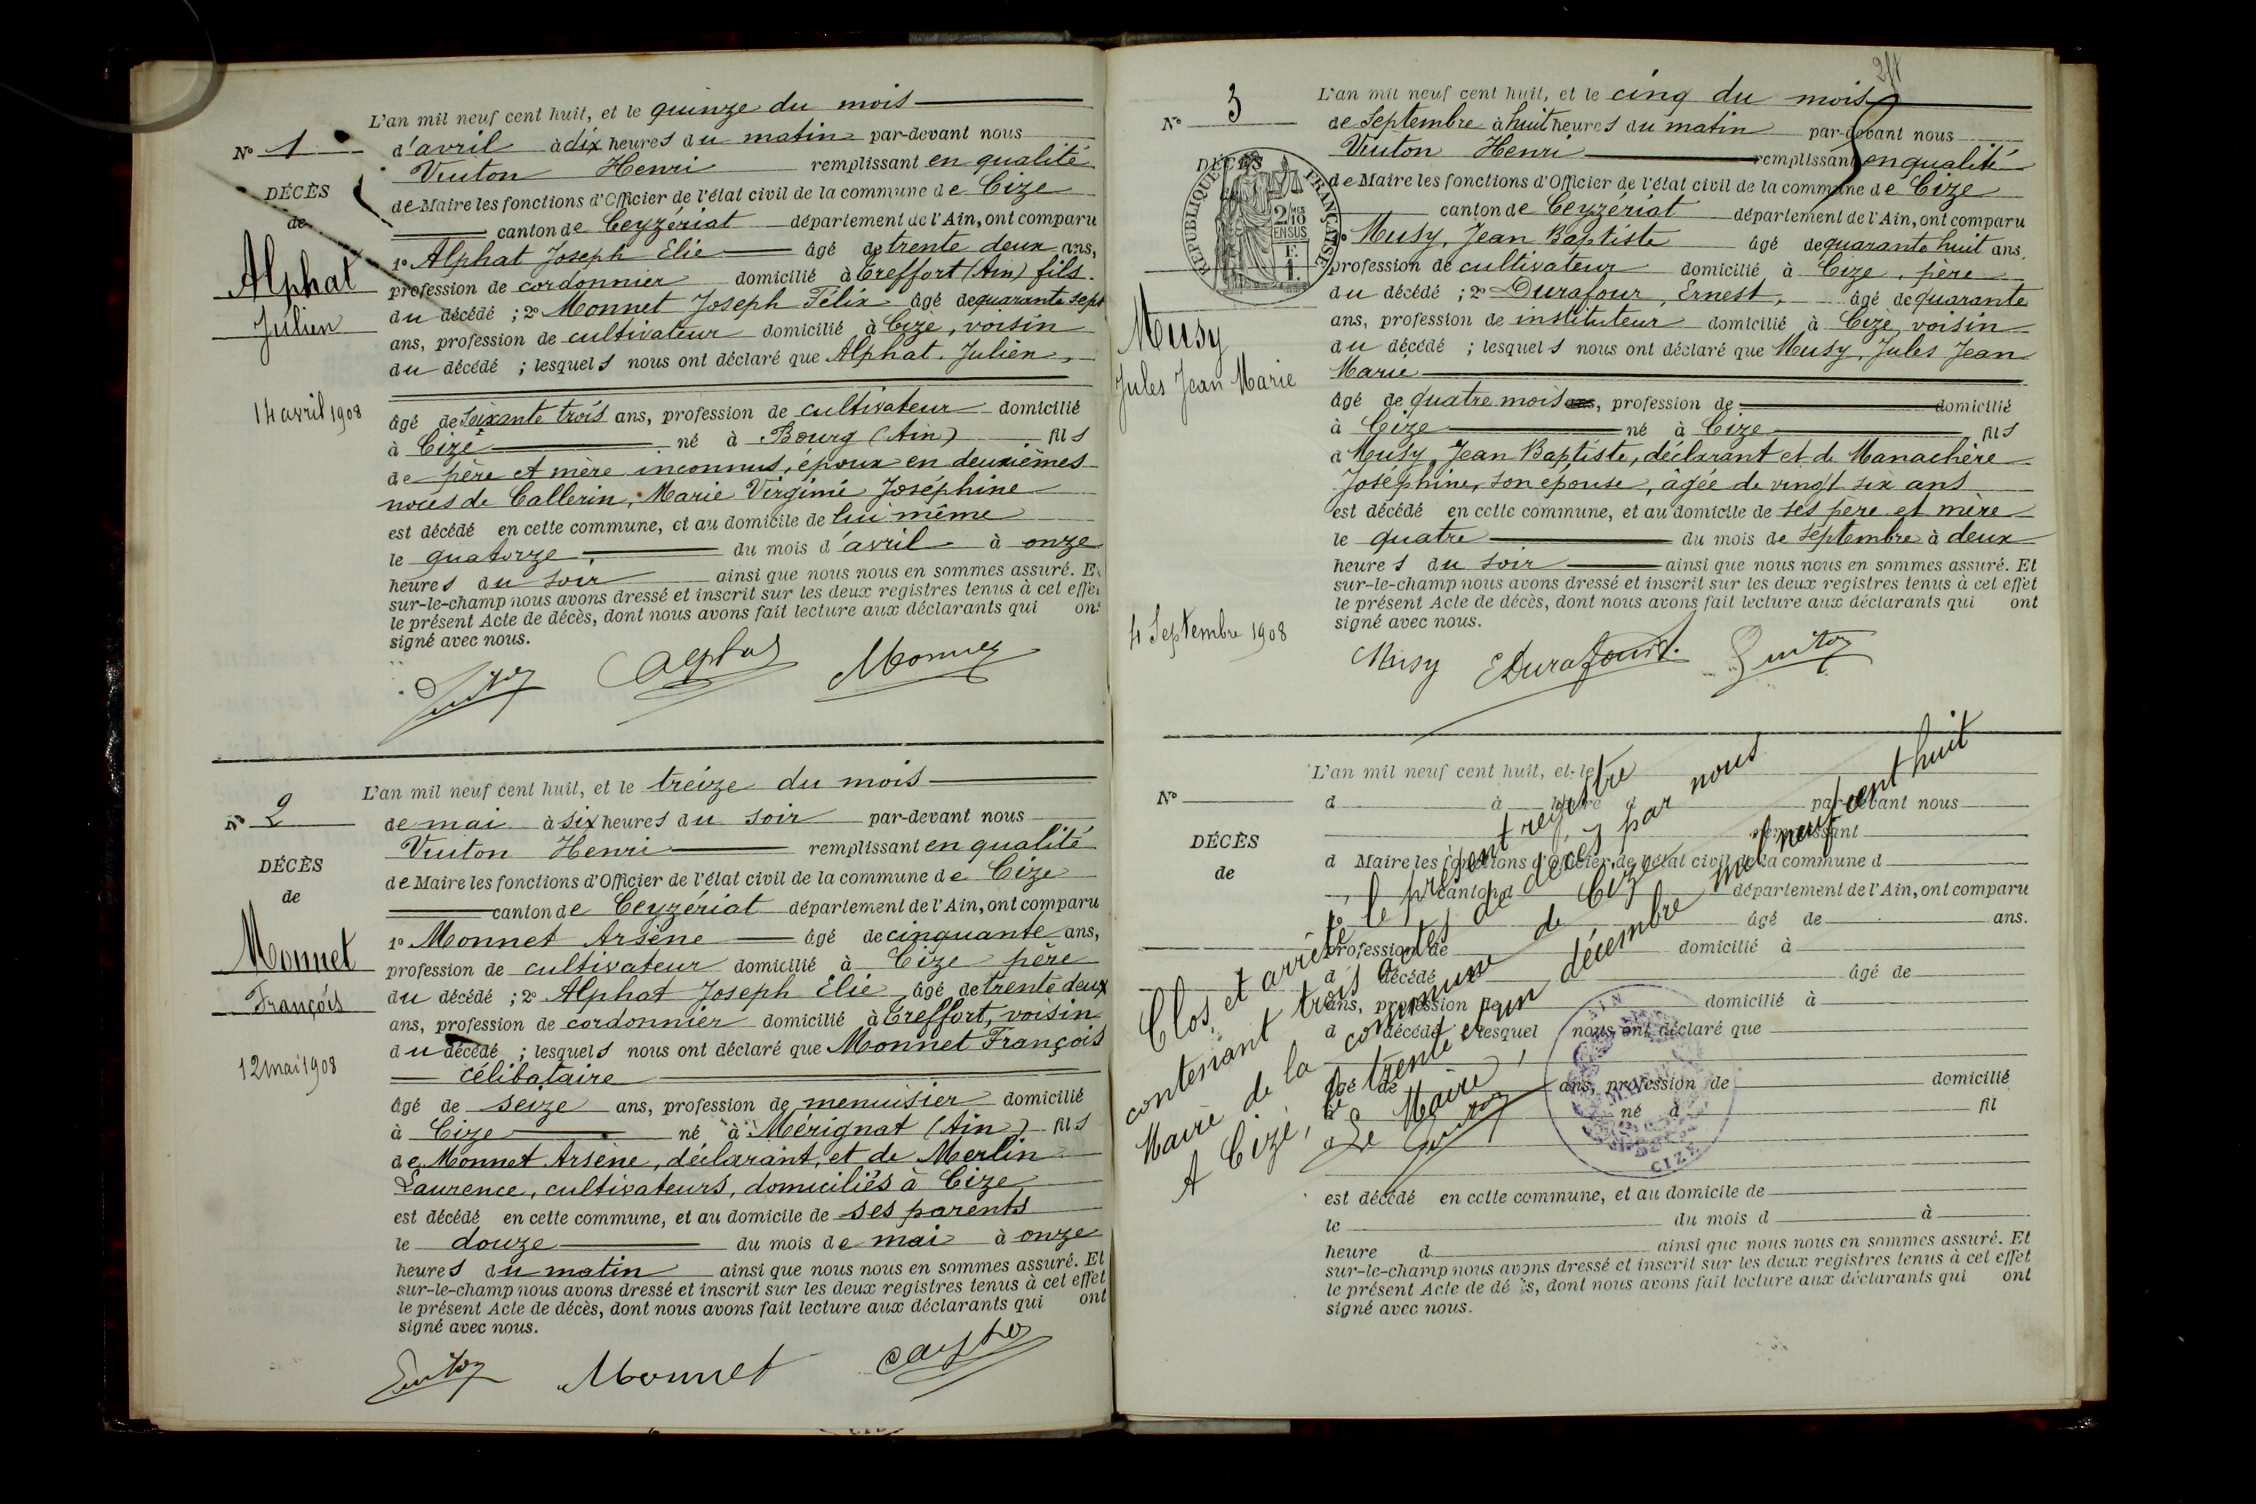 L'an mil neuf cent huit, et le quinze du mois
N° 1
d'avril à dix heures du matin par-devant nous
Vuiton Henri remplissant en qualité
DÉCÈS
de Maire les fonctions d'Officier de l'état civil de la commune de Cize
de
canton de Ceyzériat département de l'Ain, ont comparu
1° Alphat Joseph Elie âgé de trente deux ans,
Alphat
profession de cordonnier domicilié à Treffort (Ain) fils
Julien
du décédé ; 2° Monnet Joseph Félix âgé de quarante sept
ans, profession de cultivateur domicilié à Cize, voisin
du décédé ; lesquels nous ont déclaré que Alphat Julien,
14 avril 1908
âgé de soixante trois ans, profession de cultivateur domicilié
à Cize né à Bourg (Ain) fils
de père et mère inconnus, époux en deuxièmes
noces de Callerin, Marie Virginie Joséphine
est décédé en cette commune, et au domicile de lui même
le quatorze du mois d'avril à onze
heures du soir ainsi que nous nous en sommes assuré. Et
sur-le-champ nous avons dressé et inscrit sur les deux registres tenus à cet effet
le présent Acte de décès, dont nous avons fait lecture aux déclarants qui ont
signé avec nous.
Alphat Monnet
L'an mil neuf cent huit, et le treize du mois
N° 2
de mai à six heures du soir par-devant nous
Vuiton Henri remplissant en qualité
DÉCÈS
de Maire les fonctions d'Officier de l'état civil de la commune de Cize
de
canton de Ceyzériat département de l'Ain, ont comparu
1° Monnet Arsène âgé de cinquante ans,
Monnet
profession de cultivateur domicilié à Cize père
François
du décédé ; 2° Alphat Joseph Elie âgé de trente deux
ans, profession de cordonnier domicilié à Treffort, voisin
du décédé ; lesquels nous ont déclaré que Monnet François
12 mai 1908
célibataire
âgé de seize ans, profession de menuisier domicilié
à Cize né à Mérignat (Ain) fils
de Monnet Arsène, déclarant, et de Merlin
Laurence, cultivateurs, domiciliés à Cize
est décédé en cette commune, et au domicile de ses parents
le douze du mois de mai à onze
heures du matin ainsi que nous nous en sommes assuré. Et
sur-le-champ nous avons dressé et inscrit sur les deux registres tenus à cet effet
le présent Acte de décès, dont nous avons fait lecture aux déclarants qui ont
signé avec nous.
Monnet
L'an mil neuf cent huit, et le cinq du mois
N° 3
de Septembre à huit heures du matin par-devant nous
Vuiton Henri remplissant en qualité
DÉCÈS
RÉPUBLIQUE FRANÇAISE
2/10 EN SUS
F. 1.
de Maire les fonctions d'Officier de l'état civil de la commune de Cize
canton de Ceyzériat département de l'Ain, ont comparu
1° Musy, Jean Baptiste âgé de quarante huit ans,
profession de cultivateur domicilié à Cize, père
du décédé ; 2° Durafour, Ernest, âgé de quarante
Musy
ans, profession de instituteur domicilié à Cize, voisin
du décédé ; lesquels nous ont déclaré que Musy, Jules Jean
Jules Jean Marie
Marie
âgé de quatre mois ans, profession de domicilié
à Cize né à Cize fils
d Musy, Jean Baptiste, déclarant et de Manachère
Joséphine, son épouse, âgée de vingt six ans
est décédé en cette commune, et au domicile de ses père et mère
le quatre du mois de Septembre à deux
heures du soir ainsi que nous nous en sommes assuré. Et
sur-le-champ nous avons dressé et inscrit sur les deux registres tenus à cet effet
le présent Acte de décès, dont nous avons fait lecture aux déclarants qui ont
4 Septembre 1908
signé avec nous.
Musy EDurafour
L'an mil neuf cent huit, et le
N°
d à heure d par-devant nous
remplissant
DÉCÈS
d Maire les fonctions d'Officier de l'état civil de la commune d
de
canton d département de l'Ain, ont comparu
1° âgé de ans.
profession de domicilié à
d décédé âgé de
ans, profession de domicilié à
d décédé lesquel nous ont déclaré que
âgé de ans, profession de domicilié
né à fil
est décédé en cette commune, et au domicile de
le du mois d à
heure d ainsi que nous nous en sommes assuré. Et
sur-le-champ nous avons dressé et inscrit sur les deux registres tenus à cet effet
le présent Acte de décès, dont nous avons fait lecture aux déclarants qui ont
signé avec nous.
Clos et arrêté le présent registre
contenant trois actes de décès par nous
Maire de la commune de Cize
A Cize, le trente et un décembre mil neuf cent huit
Le Maire,
AIN
MAIRIE
CIZE